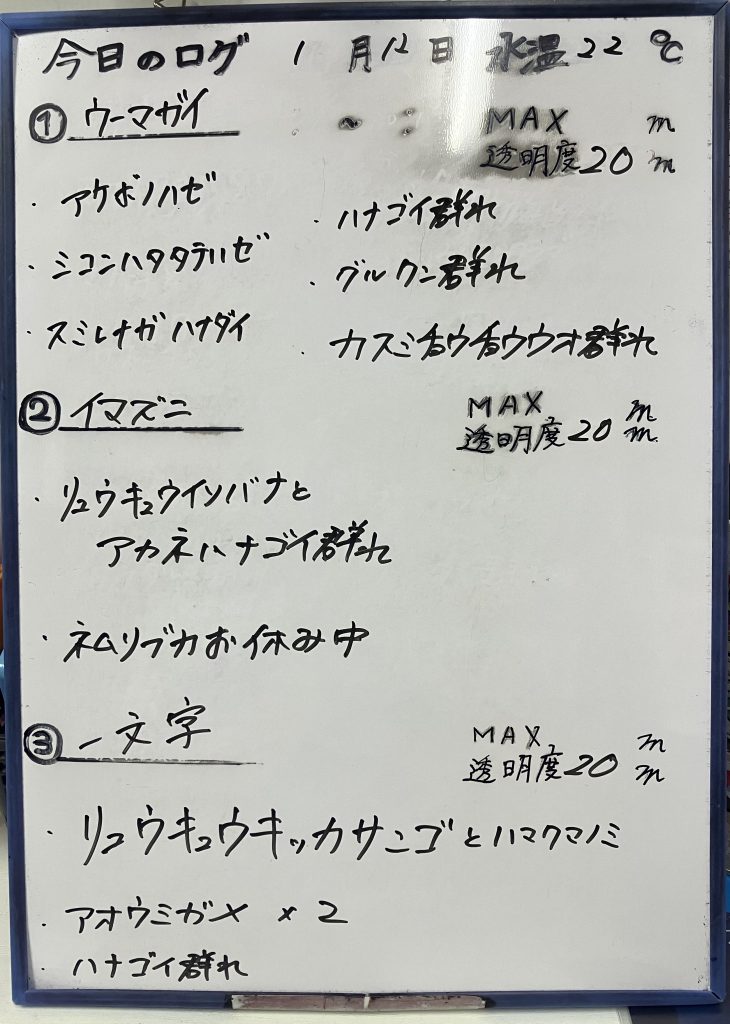 今日のログ 1月12日 水温22℃
① ウーマガイ ~ : MAX m
透明度20m
・アケボノハゼ
・ハナゴイ群れ
・シコンハタタテハゼ
・グルクン群れ
・スミレナガハナダイ
・カスミチョウチョウウオ群れ
② イマズニ MAX m
透明度20m
・リュウキュウイソバナと
アカネハナゴイ群れ
・ネムリブカお休み中
③ 一文字 MAX m
透明度20m
・リュウキュウキッカサンゴとハマクマノミ
・アオウミガメ×2
・ハナゴイ群れ